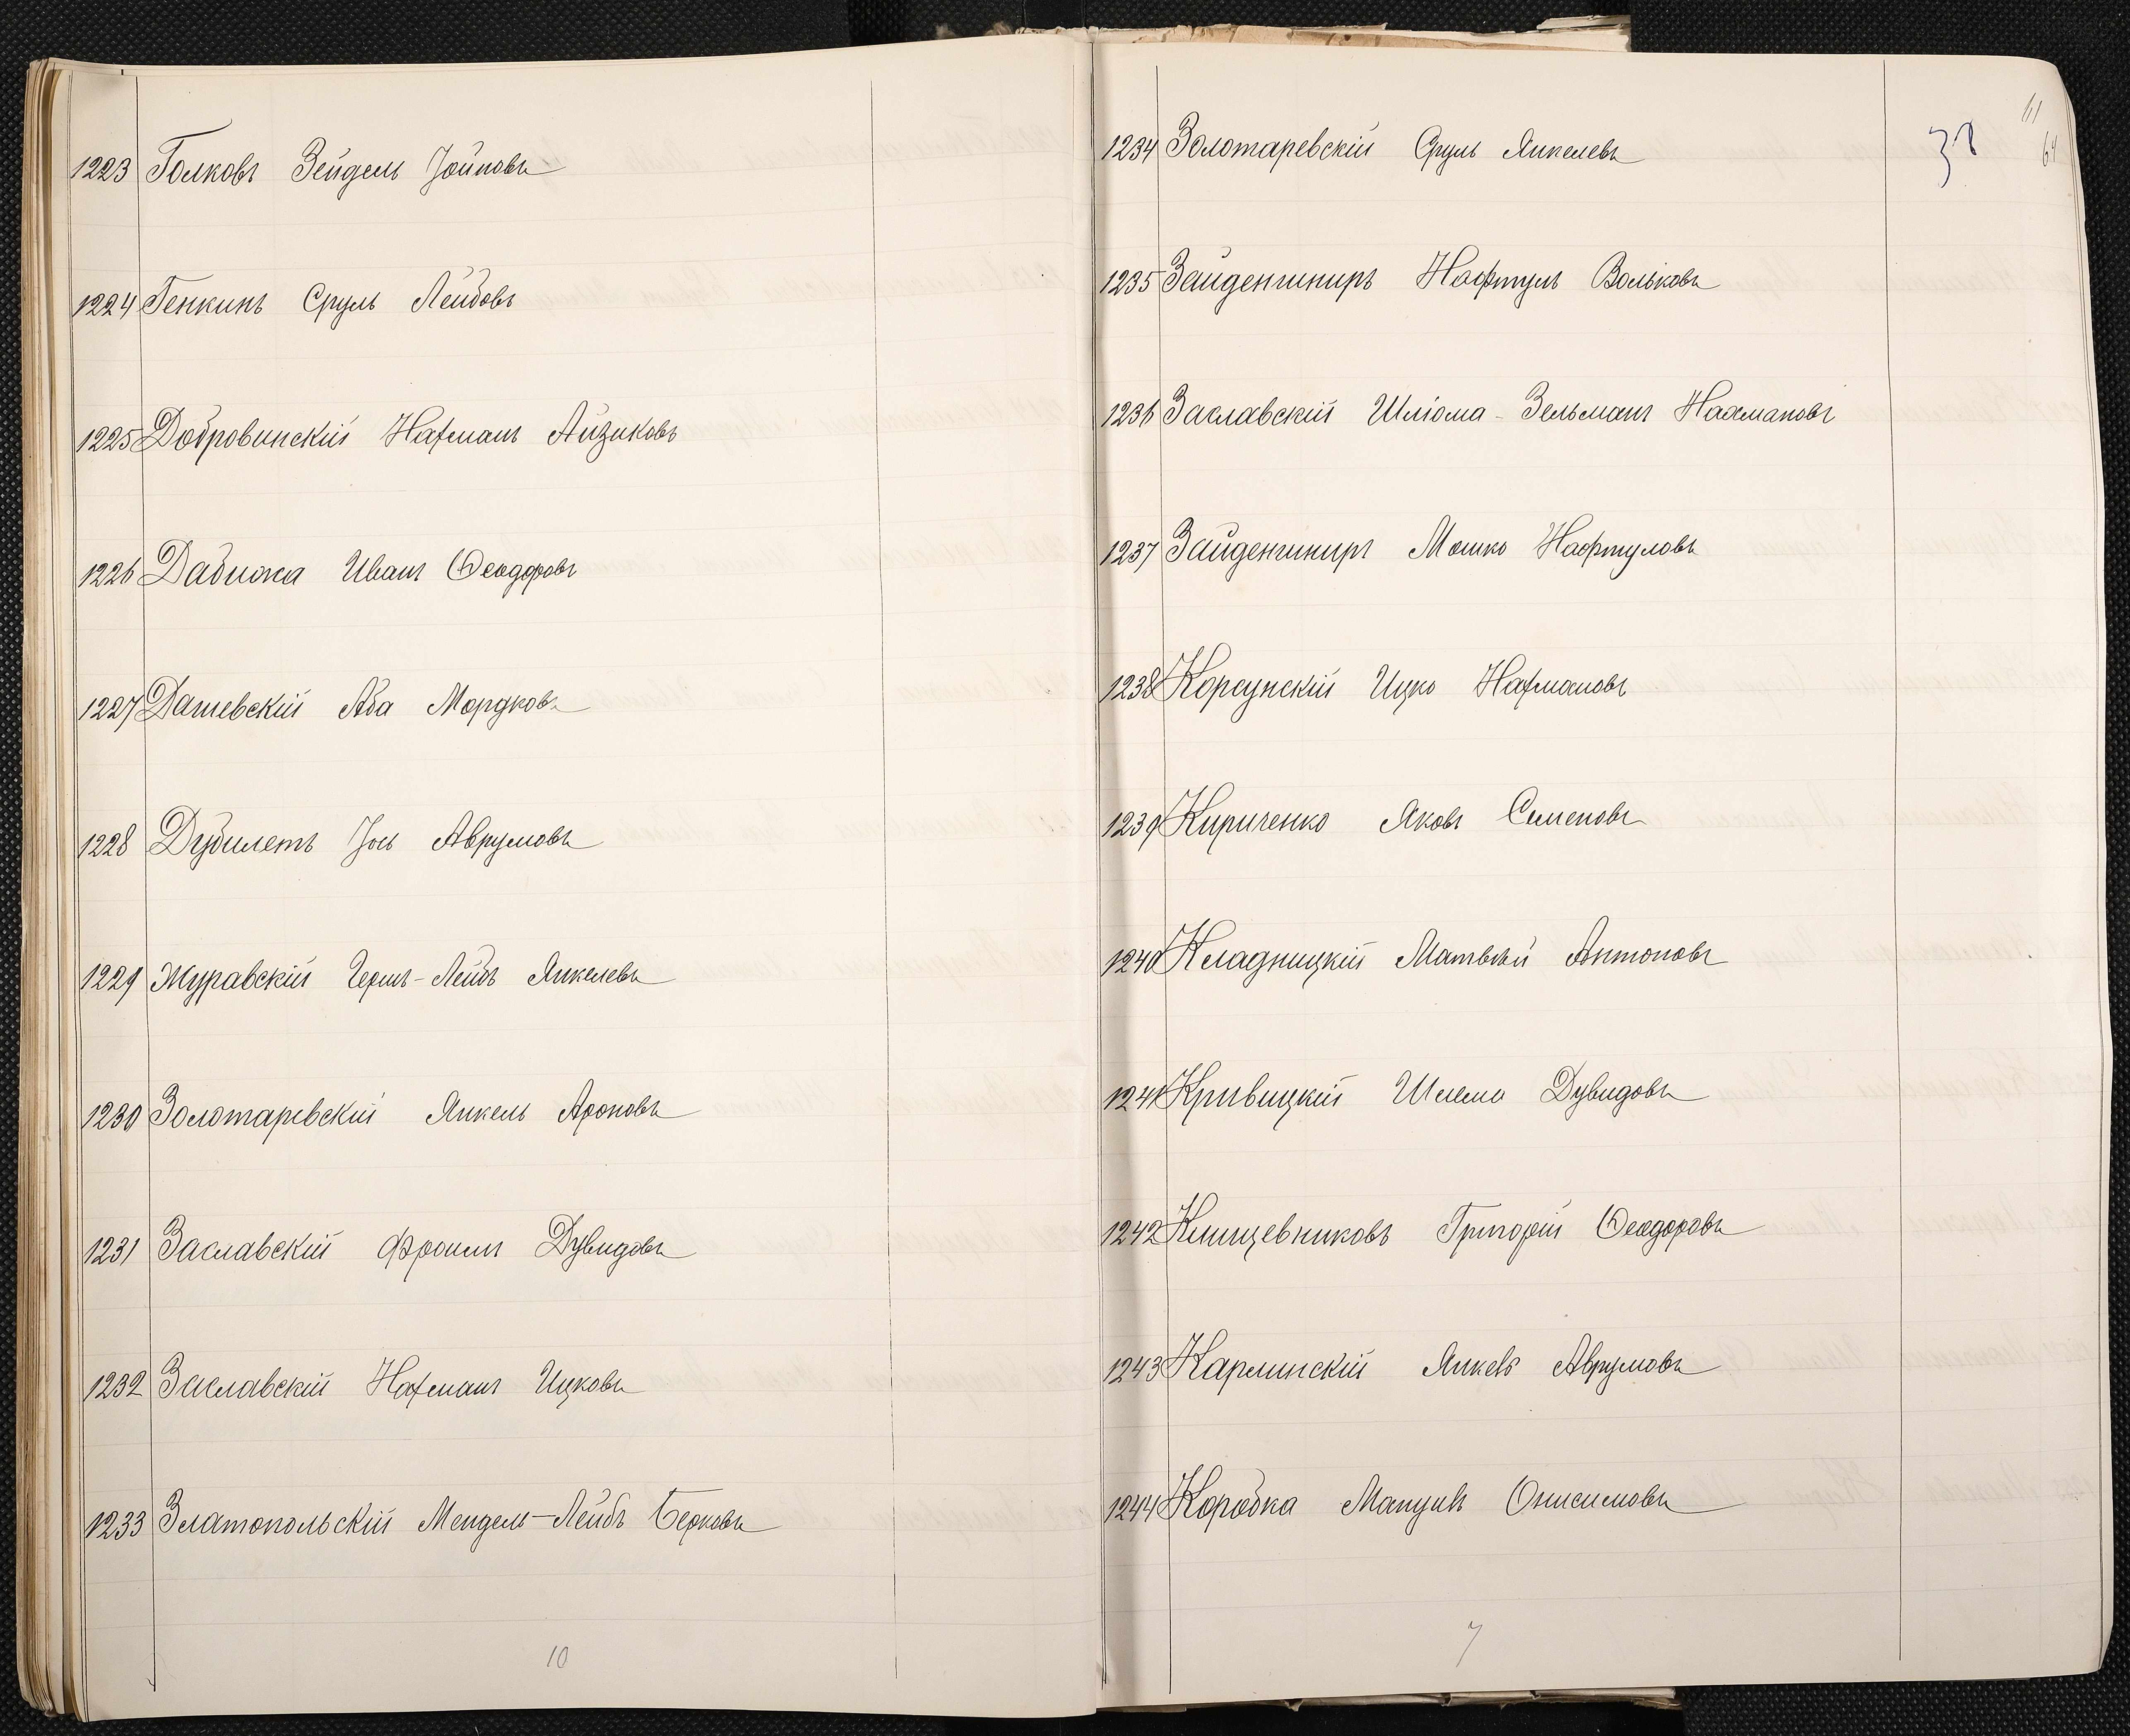 1223 Голковъ Зейдель Іойновъ
1224 Генкинъ Сруль Лейбовъ
1225 Добровинскій Нахманъ Айзиковъ
1226 Дабижа Иванъ Ѳеодоровъ
1227 Дашевскій Аба Мордковъ
1228 Дубилетъ Іось Аврумовъ
1229 Журавскій Гершъ-Лейбъ Янкелевъ
1230 Золотаревскій Янкель Ароновъ
1231 Заславскій Фроимъ Дувидовъ
1232 Заславскій Нахманъ Ицковъ
1233 Златопольскій Мендель-Лейбъ Берковъ
10
61
38
64
1234 Золотаревскій Сруль Янкелевъ
1235 Зайденшниръ Нафтулъ Вольковъ
1236 Заславскій Шліома-Зельманъ Нахмановъ
1237 Зайденшниръ Мошко Нафтуловъ
1238 Корсунскій Ицко Нахмановъ
1239 Кириченко Яковъ Семеновъ
1240 Кладницкій Матвѣй Антоновъ
1241 Кривицкій Шлема Дувидовъ
1242 Клищевниковъ Григорій Ѳеодоровъ
1243 Карлинскій Янкель Аврумовъ
1244 Коробка Мануилъ Онисимовъ
7